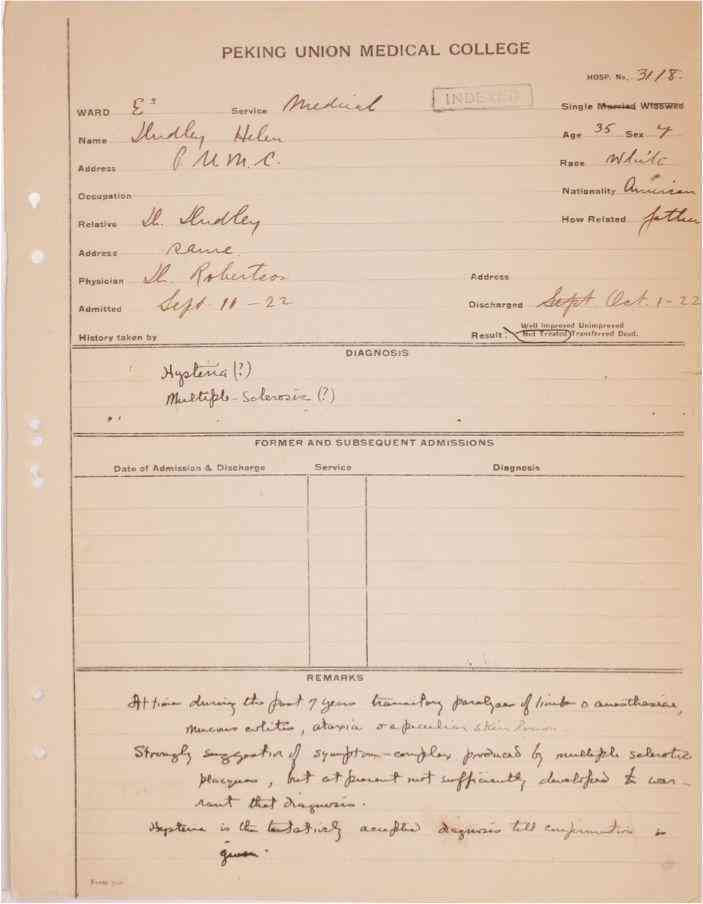 PEKING UNION MEDICAL COLLEGE
HOSP. No. 3118.
WARD E³ Service Medical INDEXED Single Married Widowed
Name Dudley Helen Age 35 Sex
Address P.U.M.C. Race White
Occupation Nationality American
Relative Dr. Dudley How Related father
Address same
Physician Dr. Robertson Address
Admitted Sept 11-22 Discharged Sept Oct. 1-22
History taken by Result. Well Improved Unimproved
Not Treated Transferred Dead.
DIAGNOSIS
Hysteria (?)
Multiple-Sclerosis (?)
FORMER AND SUBSEQUENT ADMISSIONS
Date of Admission & Discharge Service Diagnosis
REMARKS
At times during the past 7 years transitory paralyses of limbs anaesthesiae,
mucous colitis, ataxia peculiar skin
Strongly suggestive of symptom-complex produced by multiple sclerotic
placques, but at present not sufficiently developed to war-
rant that diagnosis.
Hysteria is the tentatively accepted diagnosis till confirmation is
given.